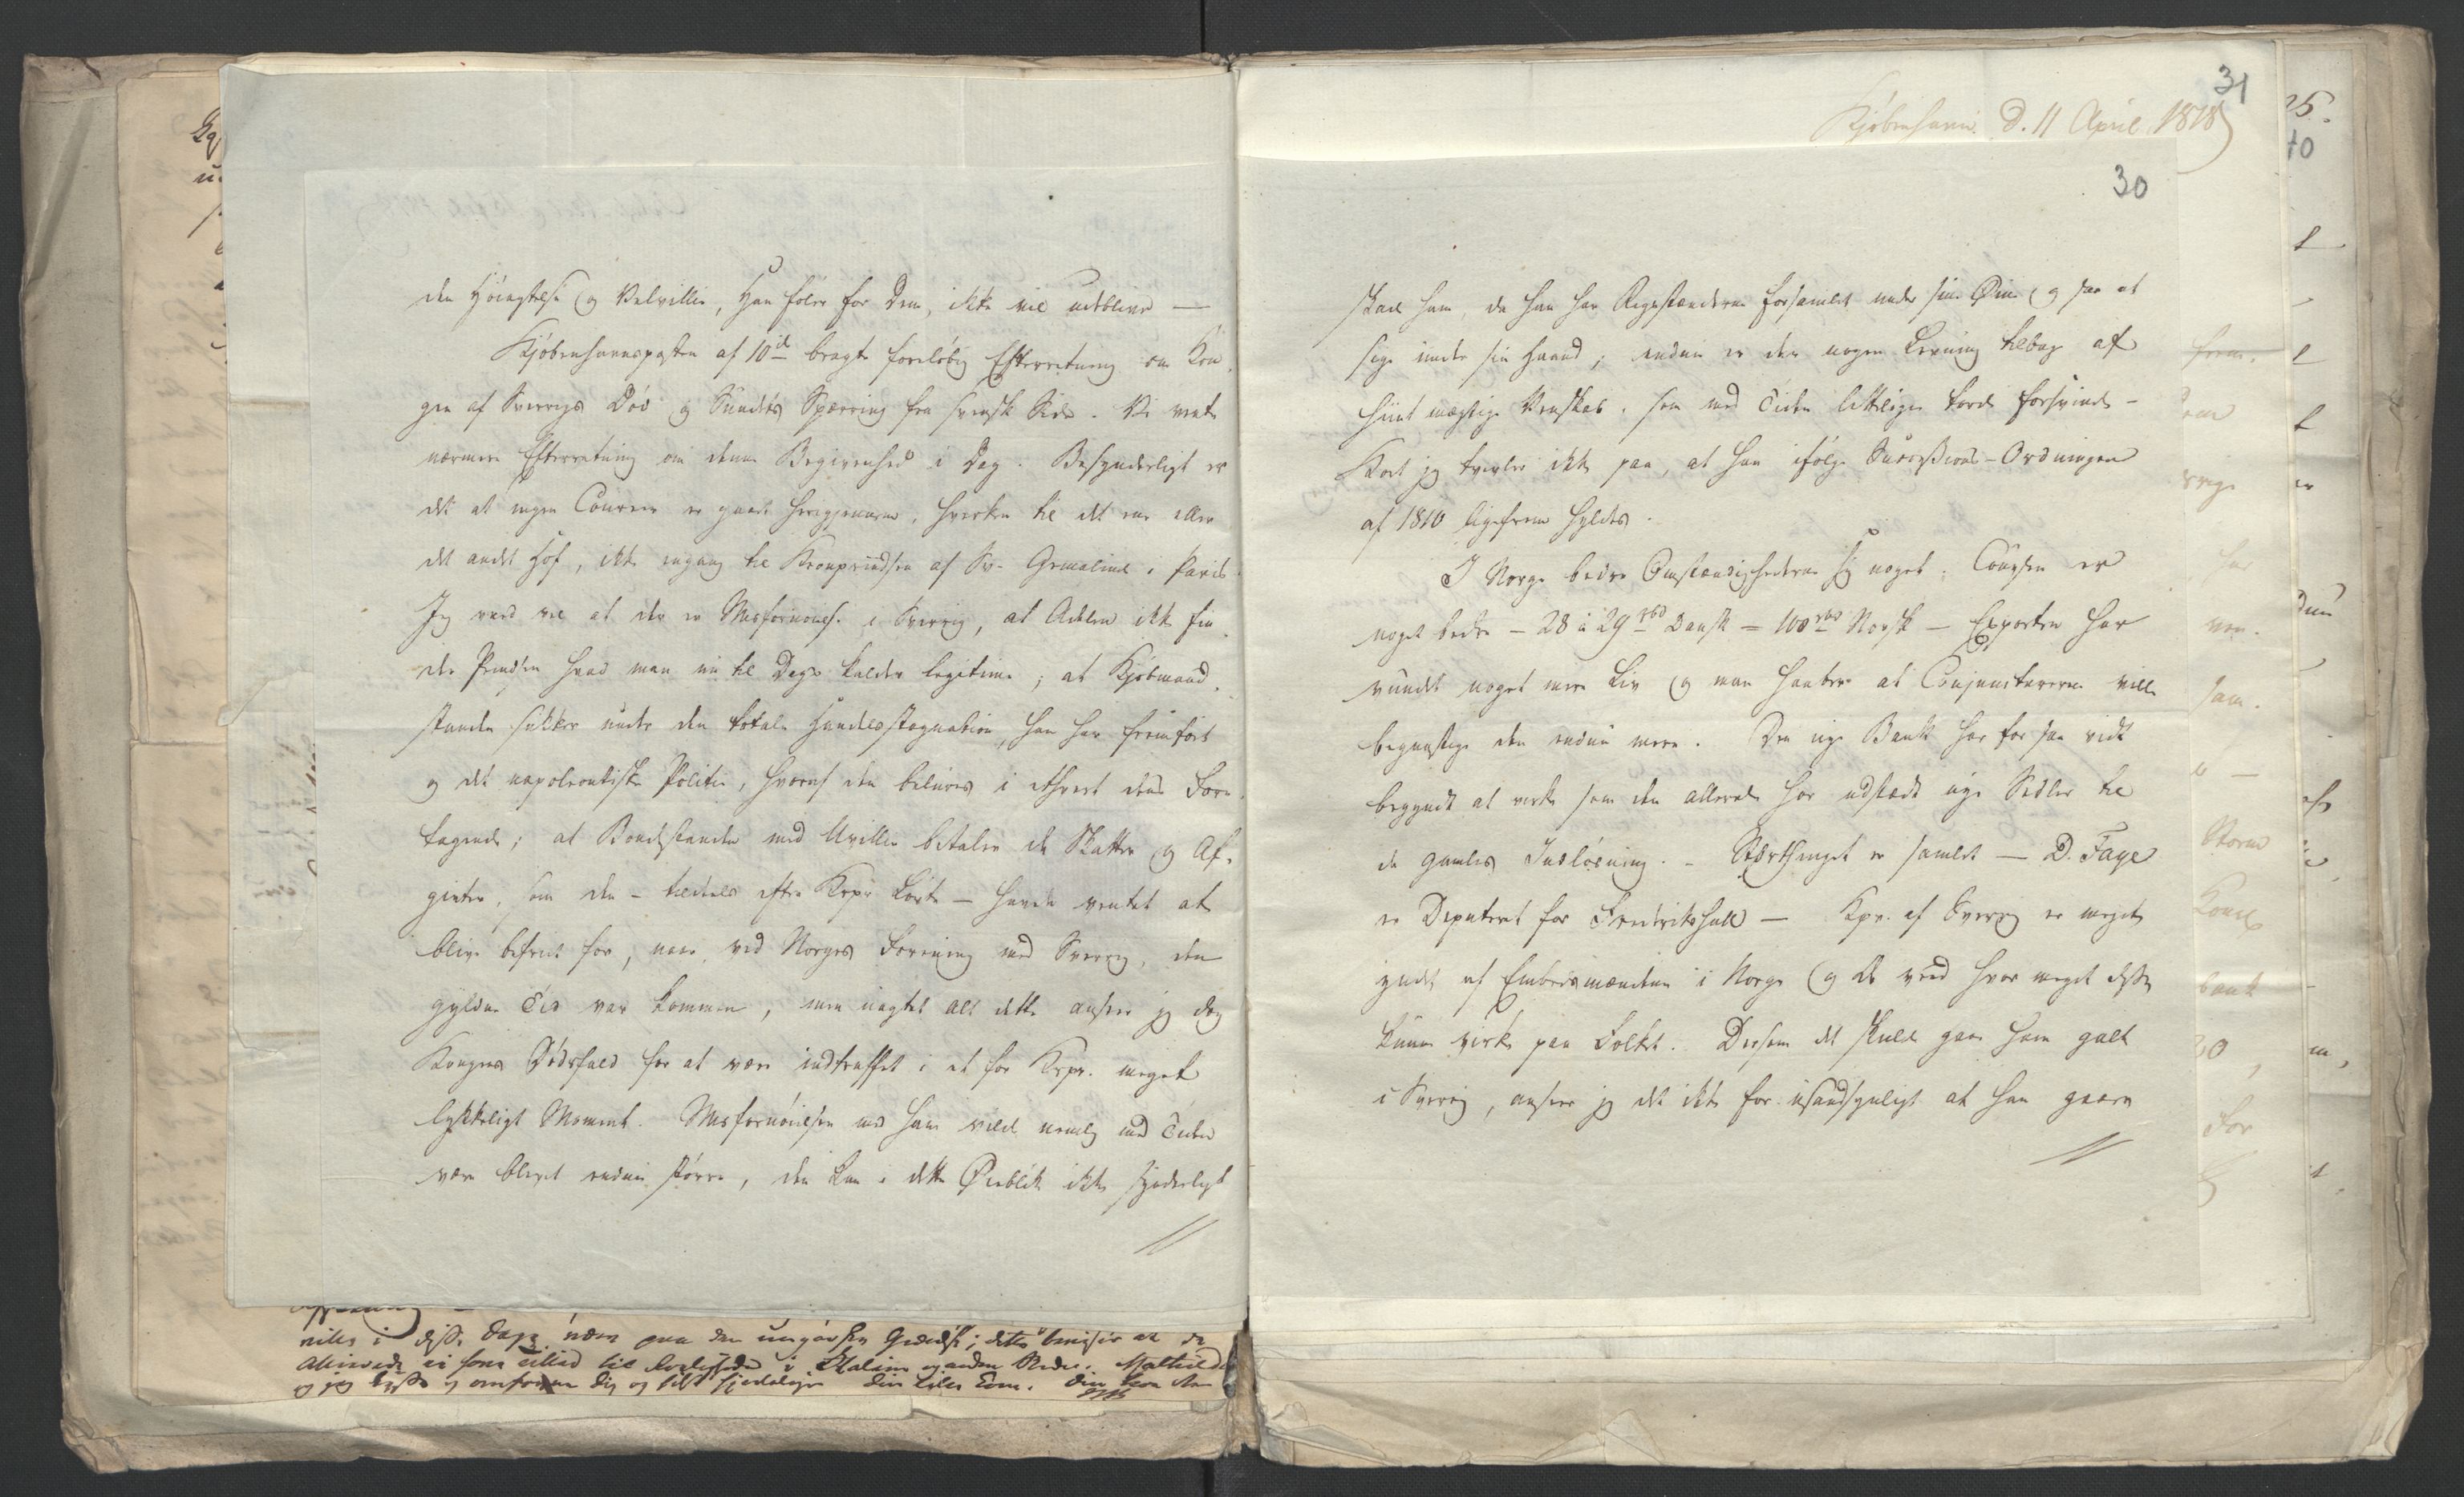 den Høiagtelse og Velvillie, Han føler for Dem, ikke vil udeblive —
Kjøbenhavnsposten af 10de bragte foreløbig Efterretning om Kon-
gen af Sverrigs Død og Sundets Spærring fra svensk Side. Vi vente
nærmere Efterretning om denne Begivenhed i Dag. Besynderligt er
det at ingen Courier er gaaet herigjennem, hverken til det ene eller
det andet Hof, ikke engang til Kronprindsen af Sv. Gemalinde i Paris.
Jeg veed vel at der er Misfornøielse i Sverrig, at Adelen ikke fin-
der Prindsen hvad man nu til Dags kalder legitime; at Kjøbmand-
standen sukker under den totale Handelsstagnation, han har fremført
og det napoleontiske Politie, hvoraf den belures i ethvert dens Fore-
tagende; at Bondestanden med Uvillie betaler de Skatter og Af-
givter, som den – tildeels efter Krpr Løvte – havde ventet at
blive befriet for, naar, ved Norges Forening med Sverrig, den
gyldne Tid var kommen, men uagtet alt dette anseer jeg dog
Kongens Dødsfald for at være indtruffet i et for Krpr. meget
lykkeligt Moment. Misfornøielsen med ham vilde nemlig med Tiden
være blevet endnu større, den kan i dette Øieblik ikke synderligt
31
Kjøbenhavn D. 11 April 1818
30
skade ham, da han har Rigsstænderne forsamlet under sine Øine og saa at
sige under sin Haand; endnu er der nogen Levning tilbage af
hiint mægtige Venskab, som med Tiden letteligen torde forsvinde –
Kort jeg tvivler ikke paa, at han ifølge Successions-Ordningen
af 1810 ligefrem hyldes.
I Norge bedre Omstændighederne sig noget. Coursen er
noget bedre – 28 à 29 rbd Dansk = 100 rbd Norsk – Exporten har
vundet noget mere Liv og man haaber at Conjuncturerne ville
begunstige den endnu mere. Den nye Bank har for saa vidt
begyndt at virke som den allerede har udstædt nye Sedler til
de gamles Indløsning. – Storthinget er samlet — D. Faye
er Deputeret for Fredrikshald — Kpr. af Sverrig er meget
yndet af Embedsmændene i Norge og De veed hvor meget disse
kunne virke paa Folket. Dersom det skulde gaae ham galt
i Sverrig, anseer jeg det ikke for usandsynligt at han gjerne